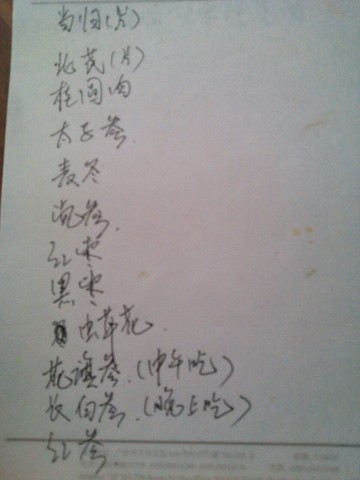 当归(片)
北芪(片)
桂圆肉
太子参
麦冬
党参.
红枣
黑枣
虫草花.
花旗参.(中午吃)
长白参.(晚上吃)
红参.